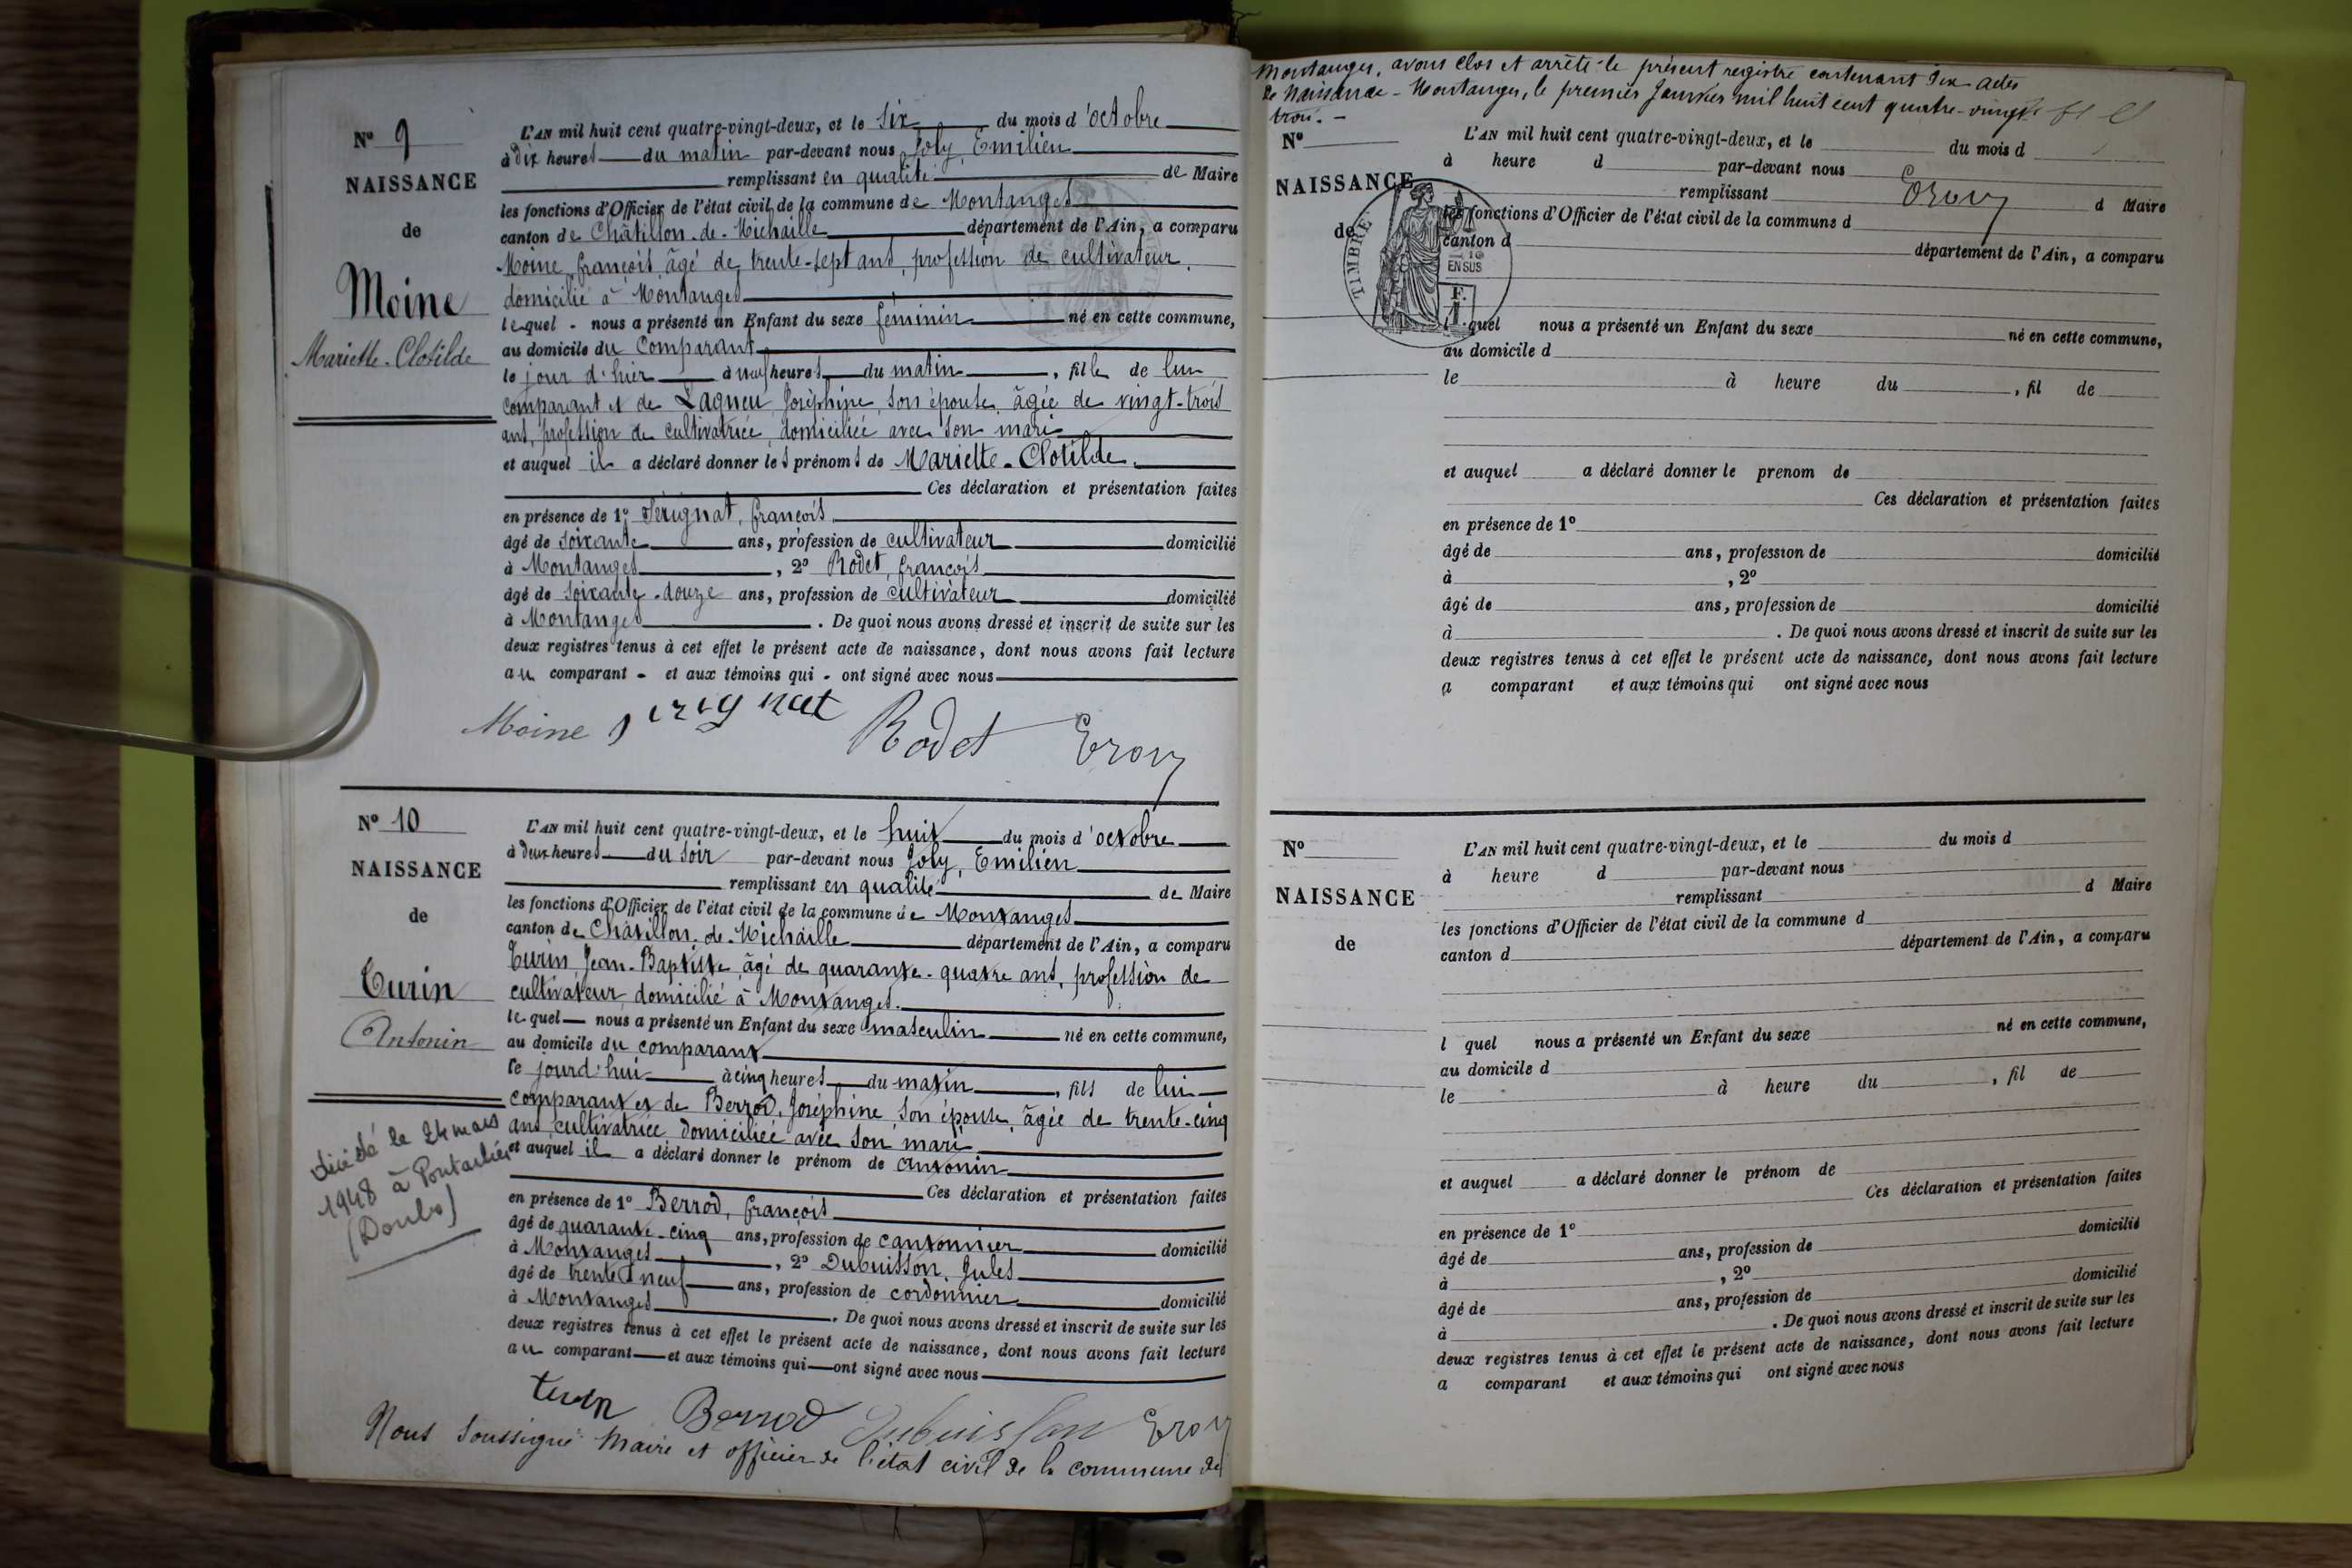 N° 9
NAISSANCE
de
Moine
Mariette-Clotilde
L'AN mil huit cent quatre-vingt-deux, et le six du mois d'octobre
à dix heures du matin par-devant nous Joly, Emilien
remplissant en qualité de Maire
les fonctions d'Officier de l'état civil de la commune de Montanges
canton de Châtillon-de-Michaille département de l'Ain, a comparu
Moine françois, âgé de trente-sept ans, profession de cultivateur,
domicilié à Montanges
lequel - nous a présenté un Enfant du sexe féminin né en cette commune,
au domicile du Comparant
le jour d'hier à neuf heures du matin, fille de lui
comparant et de Lagneu Joséphine, son épouse, âgée de vingt-trois
ans, profession de cultivatrice, domiciliée avec son mari
et auquel il a déclaré donner les prénoms de Mariette-Clotilde.
Ces déclaration et présentation faites
en présence de 1° Sérignat, françois
âgé de soixante ans, profession de cultivateur domicilié
à Montanges, 2° Rodet, françois
âgé de soixante-douze ans, profession de cultivateur domicilié
à Montanges. De quoi nous avons dressé et inscrit de suite sur les
deux registres tenus à cet effet le présent acte de naissance, dont nous avons fait lecture
au comparant - et aux témoins qui - ont signé avec nous
Moine Sérignat Rodet
N° 10
NAISSANCE
de
Turin
Antonin
décédé le 24 mars
1948 à Pontarlier
(Doubs)
L'AN mil huit cent quatre-vingt-deux, et le huit du mois d'octobre
à deux heures du soir par-devant nous Joly, Emilien
remplissant en qualité de Maire
les fonctions d'Officier de l'état civil de la commune de Montanges
canton de Châtillon-de-Michaille département de l'Ain, a comparu
Turin Jean-Baptiste, âgé de quarante-quatre ans, profession de
cultivateur, domicilié à Montanges.
lequel — nous a présenté un Enfant du sexe masculin né en cette commune,
au domicile du comparant
le jourd'hui à cinq heures du matin, fils de lui
comparant et de Berrod, Joséphine, son épouse, âgée de trente-cinq
ans, cultivatrice, domiciliée avec son mari
et auquel il a déclaré donner le prénom de Antonin
Ces déclaration et présentation faites
en présence de 1° Berrod, françois
âgé de quarante-cinq ans, profession de cantonnier domicilié
à Montanges, 2° Dubuisson, Jules
âgé de trente neuf ans, profession de cordonnier domicilié
à Montanges. De quoi nous avons dressé et inscrit de suite sur les
deux registres tenus à cet effet le présent acte de naissance, dont nous avons fait lecture
au comparant — et aux témoins qui — ont signé avec nous
turin Berrod Dubuisson
Nous soussigné Maire et officier de l'état civil de la commune de
Montanges, avons clos et arrêté le présent registre contenant dix actes
de Naissance - Montanges, le premier Janvier mil huit cent quatre-vingt
trois. -
N°
NAISSANCE
de
TIMBRE
10
EN SUS
1 F.
L'AN mil huit cent quatre-vingt-deux, et le du mois d
à heure d par-devant nous
remplissant d Maire
les fonctions d'Officier de l'état civil de la commune d
canton d département de l'Ain, a comparu
l quel nous a présenté un Enfant du sexe né en cette commune,
au domicile d
le à heure du, fil de
et auquel a déclaré donner le prenom de
Ces déclaration et présentation faites
en présence de 1°
âgé de ans, profession de domicilié
à, 2°
âgé de ans, profession de domicilié
à. De quoi nous avons dressé et inscrit de suite sur les
deux registres tenus à cet effet le présent acte de naissance, dont nous avons fait lecture
a comparant et aux témoins qui ont signé avec nous
N°
NAISSANCE
de
L'AN mil huit cent quatre-vingt-deux, et le du mois d
à heure d par-devant nous
remplissant d Maire
les fonctions d'Officier de l'état civil de la commune d
canton d département de l'Ain, a comparu
l quel nous a présenté un Enfant du sexe né en cette commune,
au domicile d
le à heure du, fil de
et auquel a déclaré donner le prénom de
Ces déclaration et présentation faites
en présence de 1°
âgé de ans, profession de domicilié
à, 2°
âgé de ans, profession de domicilié
à. De quoi nous avons dressé et inscrit de suite sur les
deux registres tenus à cet effet le présent acte de naissance, dont nous avons fait lecture
a comparant et aux témoins qui ont signé avec nous